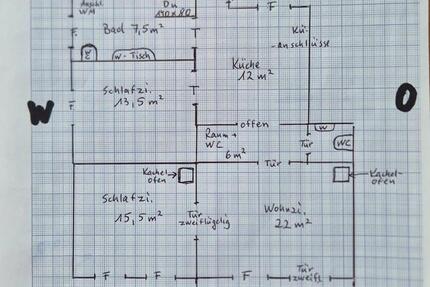 Anschl.
WM
Du
140x80
F
F
Bad 7,5m²
T
Kü-
anschlüsse
W-Tisch
Küche
12 m²
Schlafzi.
13,5 m²
T
F
W
O
offen
Raum +
WC
6 m²
W
WC
Tür
Tür
Kachel-
ofen
Kachel-
ofen
Schlafzi.
15,5 m²
Tür
zweiflügelig
Wohnzi.
22 m²
F
F
F
Tür
zweifl.